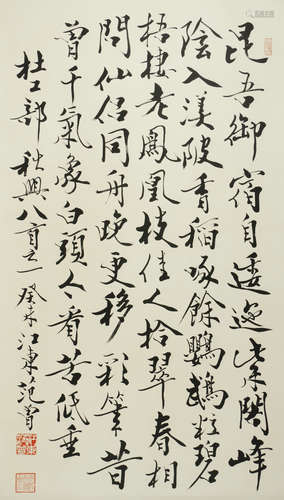 昆吾御宿自逶迤紫閣峰
陰入渼陂香稻啄餘鸚鵡粒碧
梧棲老鳳凰枝佳人拾翠春相
問仙侶同舟晚更移彩筆昔
曾干氣象白頭今看苦低垂
杜工部秋興八首之一癸未江東范曾